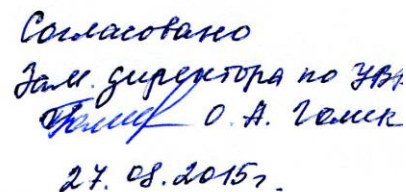 Согласовано
Зам. директора по УВР
О. А. Голик
27. 08. 2015г.